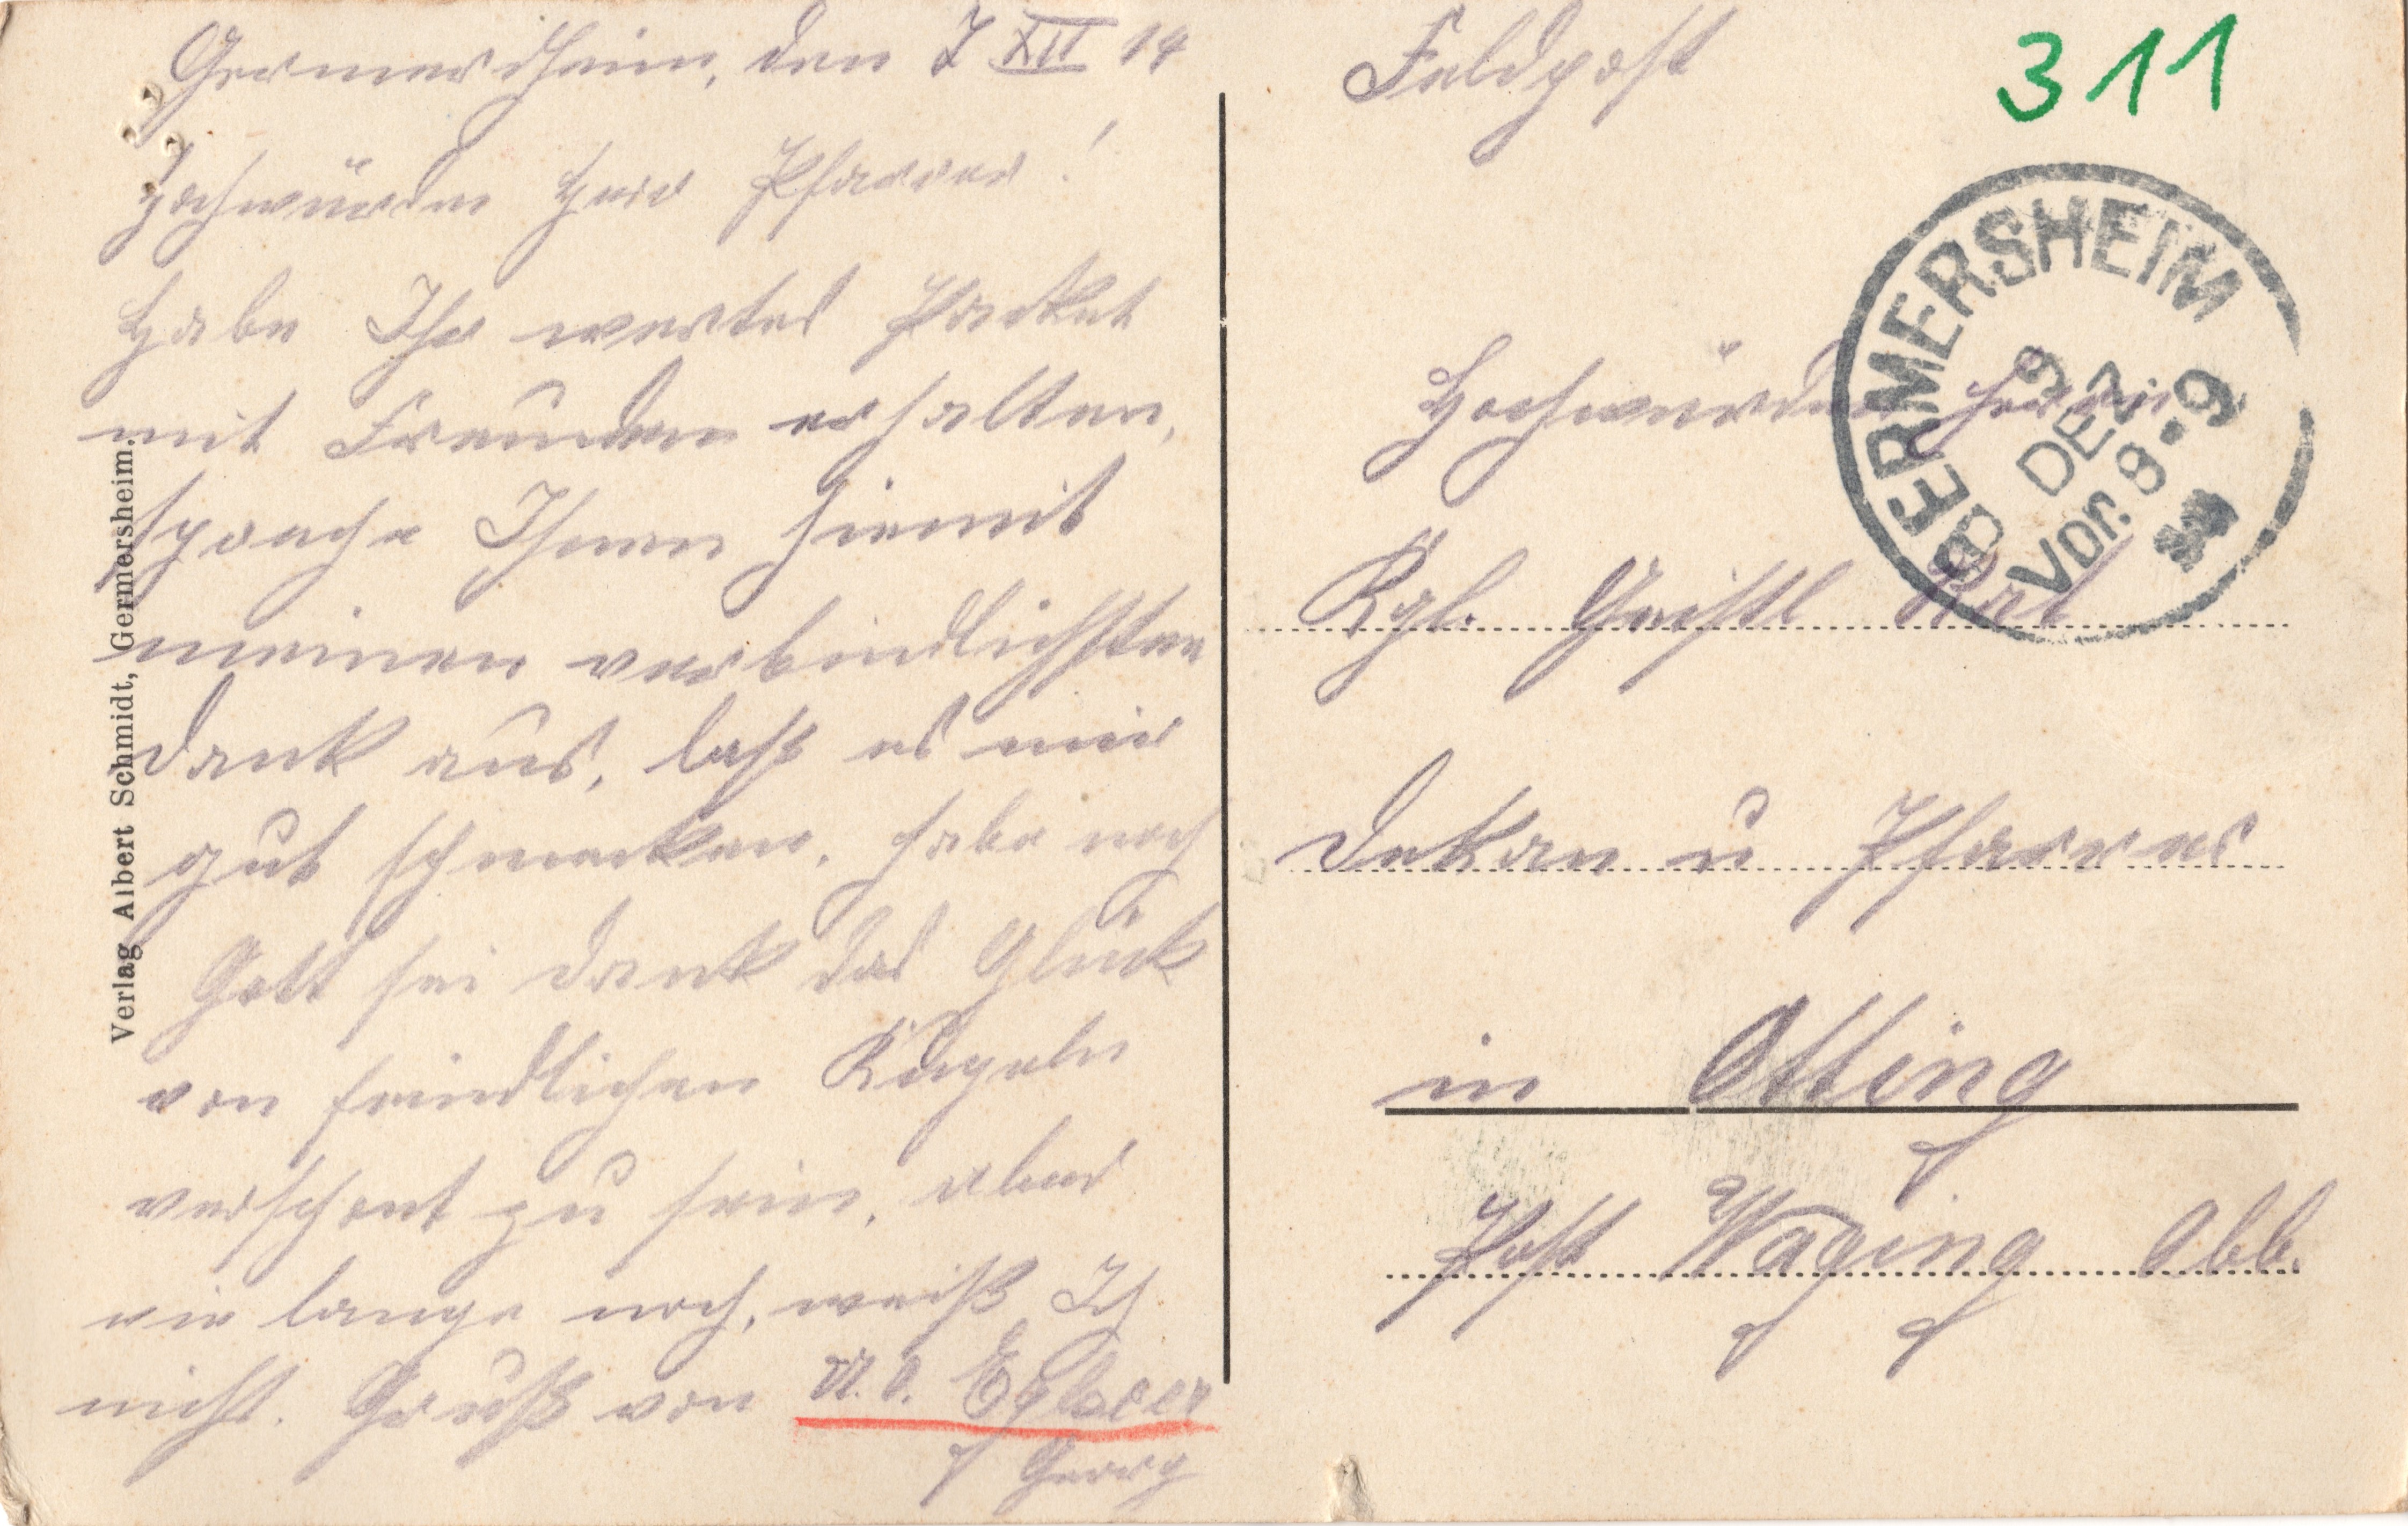 Germersheim, den 7 XII 14
Hochwürden Herr Pfarrer!
Habe Ihr wertes Packet
mit Freuden erhalten,
spreche Ihnen hiemit
meinen verbindlichsten
Dank aus, laß es mir
gut schmecken, habe noch
Gott sei Dank das Glück
von feindlichen Kugeln
verschont zu sein, aber
wie lange noch, weiß Ich
nicht. Gruß von
Georg
Verlag Albert Schmidt, Germersheim.
Feldpost
311
GERMERSHEIM
9 DEZ
Vor. 8-9
Hochwürden Herrn
Kgl. Geistl Rat
Dekan u Pfarrer
in Otting
Post Waging Obb.